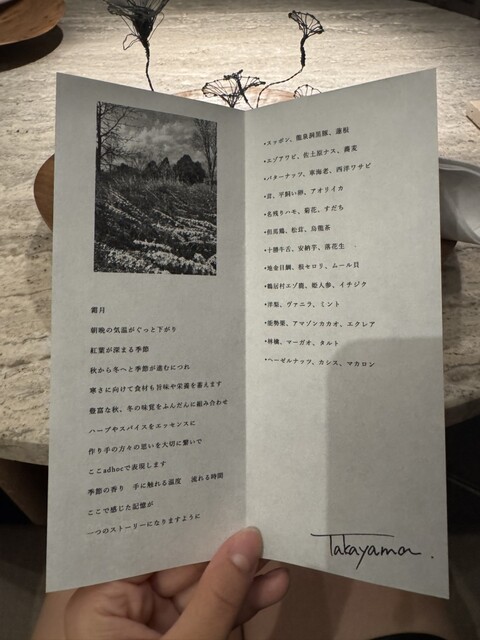 霜月
朝晩の気温がぐっと下がり
紅葉が深まる季節
秋から冬へと季節が進むにつれ
寒さに向けて食材も旨味や栄養を蓄えます
豊富な秋、冬の味覚をふんだんに組み合わせ
ハーブやスパイスをエッセンスに
作り手の方々の思いを大切に繋いで
ここadhocで表現します
季節の香り 手に触れる温度 流れる時間
ここで感じた記憶が
一つのストーリーになりますように
•スッポン、龍泉洞黒豚、蓮根
•エゾアワビ、佐土原ナス、蕎麦
•バターナッツ、車海老、西洋ワサビ
•茸、平飼い卵、アオリイカ
•名残りハモ、菊花、すだち
•但馬鶏、松茸、烏龍茶
•十勝牛舌、安納芋、落花生
•地金目鯛、根セロリ、ムール貝
•鶴居村エゾ鹿、姫人参、イチジク
•洋梨、ヴァニラ、ミント
•能勢栗、アマゾンカカオ、エクレア
•林檎、マーガオ、タルト
•ヘーゼルナッツ、カシス、マカロン
Takayama.